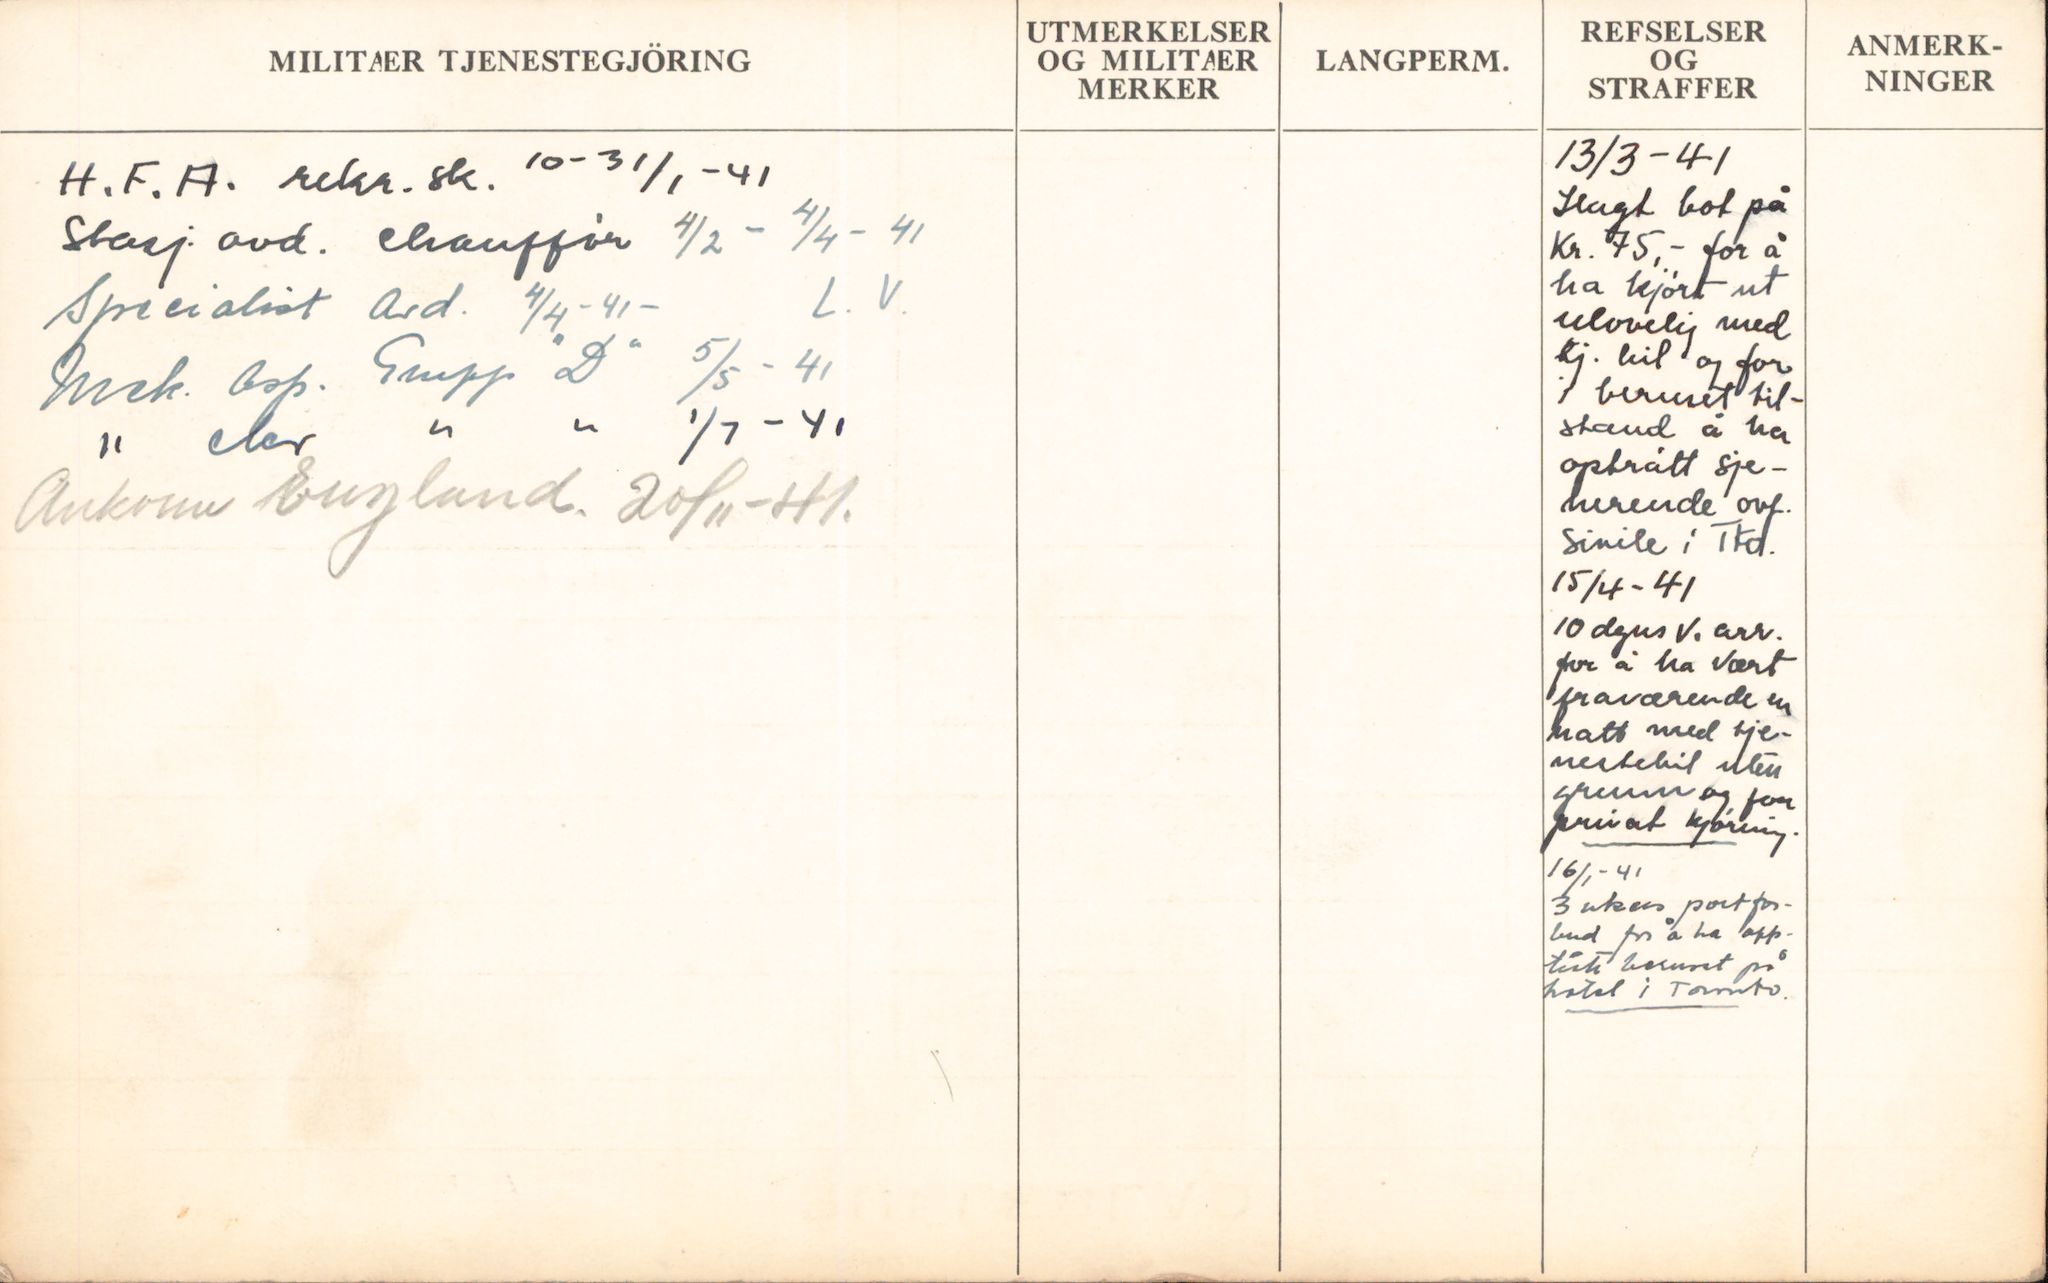 MILITAER TJENESTEGJÖRING
UTMERKELSER
OG MILITAER
MERKER
LANGPERM.
REFSELSER
OG
STRAFFER
ANMERK-
NINGER
H.F.A. rekr. sk. 10-31/1-41
Stasj. avd. chauffør 4/2 - 4/4 - 41
Specialist Avd. 4/4-41- L.V.
Mek. Asp. Grupp "D" 5/5 - 41
" elev " " 1/7 - 41
Ankom England. 20/11-41.
13/3-41
Ilagt bot på
Kr. 75,- for å
ha kjørt ut
ulovelig med
tj. bil og for
i beruset til-
stand å ha
optrått sje-
nerende ovf.
sivile i Tto.
15/4-41
10 dgns v. arr.
for å ha vært
fraværende en
natt med tje-
nestebil uten
grunn og for
privat kjøring.
16/1-41
3 ukers portfor-
bud for å ha opp-
tått beruset på
hotel i Toronto.